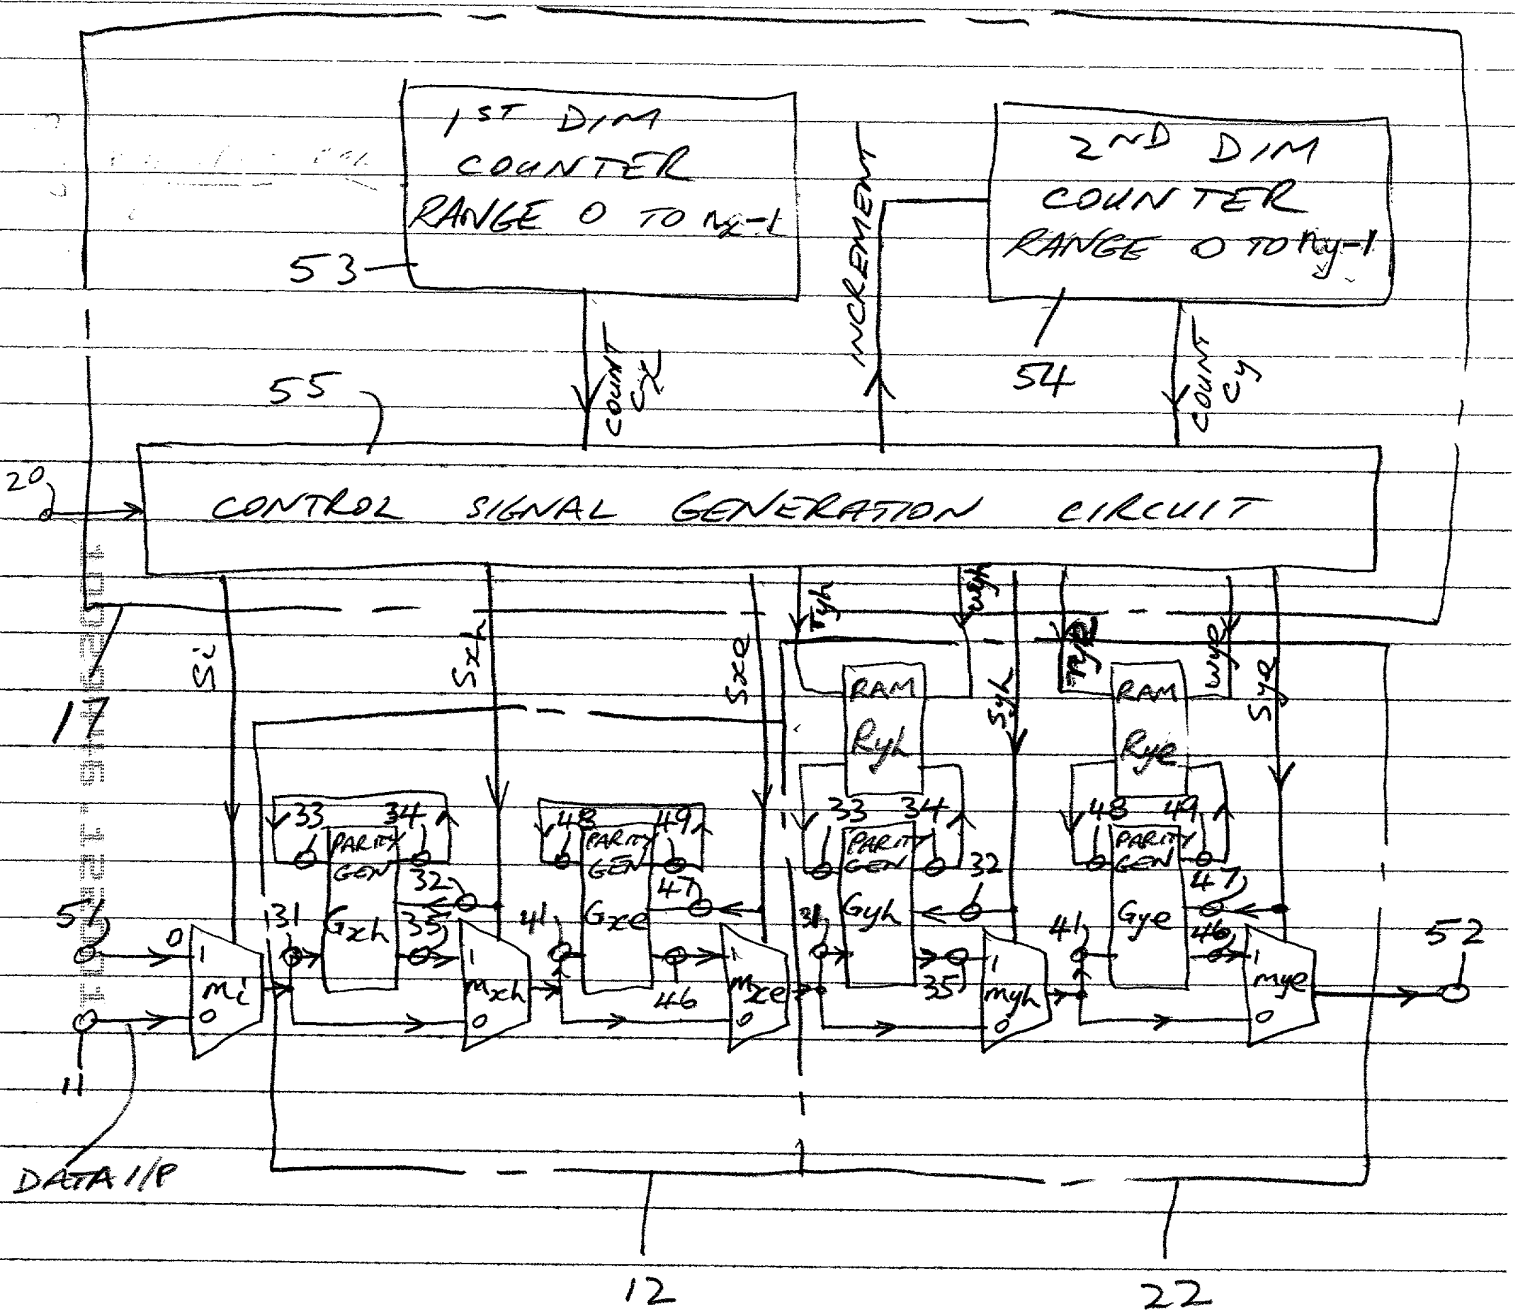 1ST DIM
COUNTER
RANGE 0 TO nx-1
53
INCREMENT
2ND DIM
COUNTER
RANGE 0 TO ny-1
54
COUNT
Cx
COUNT
Cy
55
20
CONTROL SIGNAL GENERATION CIRCUIT
17
Si
Sxh
Sxe
ryh
wyh
Syh
rye
wye
Sye
RAM
Ryh
RAM
Rye
33 34
PARITY
GEN
Gxh
32
31 35
48 49
PARITY
GEN
Gxe
47
41
46
33 34
PARITY
GEN
Gyh
32
31
35
48 49
PARITY
GEN
Gye
47
41 46
51
0
1
mi
0
1
mxh
0
1
mxe
0
1
myh
0
1
mye
0
52
11
DATA I/P
12
22